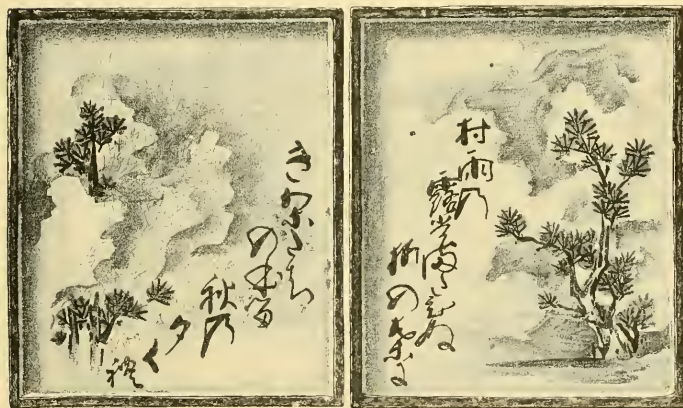 村雨乃
露もまだひぬ
槙の葉に
きりたち
のぼる
秋乃
夕
く
禮